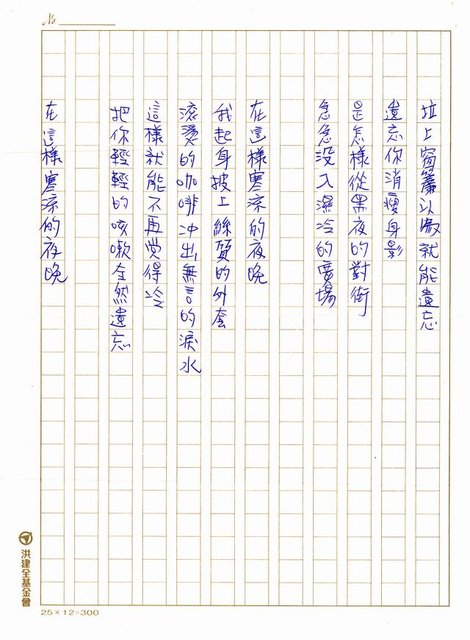 №
拉上窗簾以為就能遺忘
遺忘你消瘦身影
是怎樣從黑夜的對街
急急沒入濕冷的廣場
在這樣寒涼的夜晚
我起身披上絲質的外套
滾燙的咖啡冲出無言的淚水
這樣就能不再覺得冷
把你輕輕的咳嗽全然遺忘
在這樣寒涼的夜晚
洪建全基金會
25×12=300